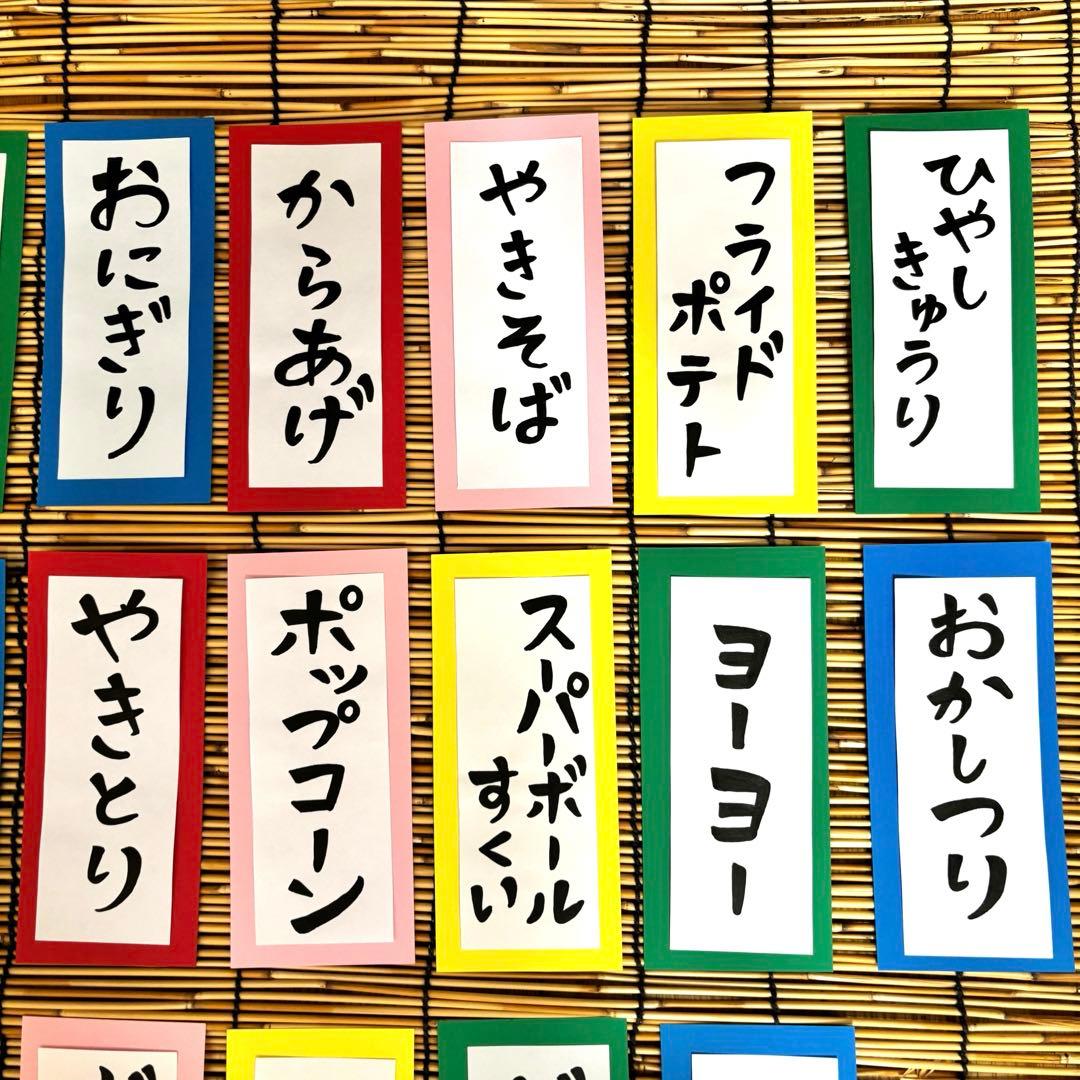 おにぎり
からあげ
やきそば
フライド
ポテト
ひやし
きゅうり
やきとり
ポップコーン
スーパーボール
すくい
ヨーヨー
おかしつり